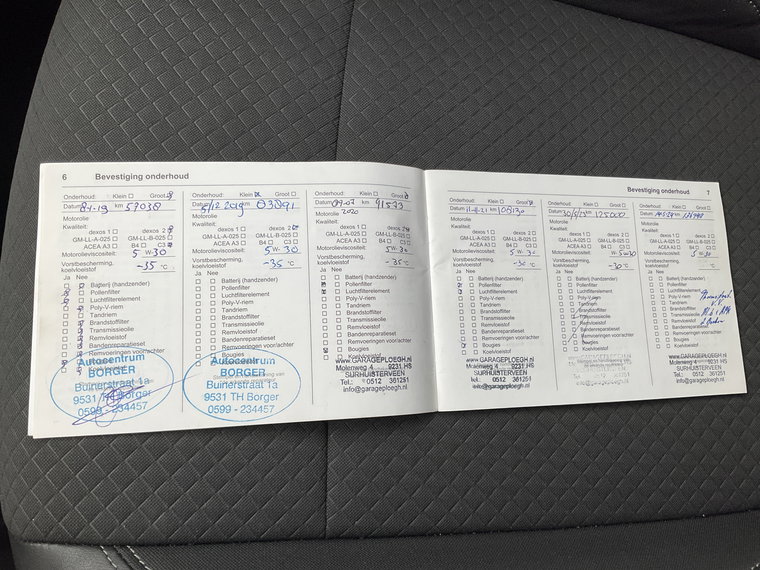 6 Bevestiging onderhoud
Onderhoud: Klein Groot
Datum 8-1-19 km 57038
Motorolie
Kwaliteit:
dexos 1 dexos 2
GM-LL-A-025 GM-LL-B-025
ACEA A3 B4 C3
Motorolieviscositeit: 5 W- 30
Vorstbescherming,
koelvloeistof -35 °C
Ja Nee
Batterij (handzender)
Pollenfilter
Luchtfilterelement
Poly-V-riem
Tandriem
Brandstoffilter
Transmissieolie
Remvloeistof
Bandenreparatieset
Remvoeringen voor/achter
Autocentrum
BORGER
Buinerstraat 1a
9531 TH Borger
0599 - 234457
Onderhoud: Klein Groot
Datum 2019 km
Motorolie
Kwaliteit:
dexos 1 dexos 2
GM-LL-A-025 GM-LL-B-025
ACEA A3 B4 C3
Motorolieviscositeit: 5 W- 30
Vorstbescherming,
koelvloeistof -35 °C
Ja Nee
Batterij (handzender)
Pollenfilter
Luchtfilterelement
Poly-V-riem
Tandriem
Brandstoffilter
Transmissieolie
Remvloeistof
Bandenreparatieset
Remvoeringen voor/achter
Bougies
Autocentrum
BORGER
Buinerstraat 1a
9531 TH Borger
0599 - 234457
Onderhoud: Klein Groot
Datum 09-07 km 91533
2020
Motorolie
Kwaliteit:
dexos 1 dexos 2
GM-LL-A-025 GM-LL-B-025
ACEA A3 B4 C3
Motorolieviscositeit: 5 W- 30
Vorstbescherming,
koelvloeistof -35 °C
Ja Nee
Batterij (handzender)
Pollenfilter
Luchtfilterelement
Poly-V-riem
Tandriem
Brandstoffilter
Transmissieolie
Remvloeistof
Bandenreparatieset
Remvoeringen voor/achter
Bougies
Koelvloeistof
www.GARAGEPLOEGH.nl
Molenweg 4 9231 HS
SURHUISTERVEEN
Tel.: 0512 361251
info@garageploegh.nl
Bevestiging onderhoud 7
Onderhoud: Klein Groot
Datum km 108130
Motorolie
Kwaliteit:
dexos 1 dexos 2
GM-LL-A-025 GM-LL-B-025
ACEA A3 B4 C3
Motorolieviscositeit: 5 W- 30
Vorstbescherming,
koelvloeistof -30 °C
Ja Nee
Batterij (handzender)
Pollenfilter
Luchtfilterelement
Poly-V-riem
Tandriem
Brandstoffilter
Transmissieolie
Remvloeistof
Bandenreparatieset
Remvoeringen voor/achter
Bougies
Koelvloeistof
www.GARAGEPLOEGH.nl
Molenweg 4 9231 HS
SURHUISTERVEEN
Tel.: 0512 361251
info@garageploegh.nl
Onderhoud: Klein Groot
Datum km 125000
Motorolie
Kwaliteit:
dexos 1 dexos 2
GM-LL-A-025 GM-LL-B-025
ACEA A3 B4 C3
Motorolieviscositeit: 5 W 30
Vorstbescherming,
koelvloeistof -30 °C
Ja Nee
Batterij (handzender)
Pollenfilter
Luchtfilterelement
Poly-V-riem
Tandriem
Brandstoffilter
Transmissieolie
Remvloeistof
Bandenreparatieset
Remvoeringen voor/achter
Bougies
Koelvloeistof
Onderhoud: Klein Groot
Datum km
Motorolie
Kwaliteit:
dexos 1 dexos 2
GM-LL-A-025 GM-LL-B-025
ACEA A3 B4 C3
Motorolieviscositeit: 5 W 30
Vorstbescherming,
koelvloeistof °C
Ja Nee
Batterij (handzender)
Pollenfilter
Luchtfilterelement
Poly-V-riem
Tandriem
Brandstoffilter
Transmissieolie
Remvloeistof
Bandenreparatieset
Remvoeringen voor/achter
Bougies
Koelvloeistof
www.GARAGEPLOEGH.nl
Molenweg 4 9231 HS
SURHUISTERVEEN
Tel.: 0512 361251
info@garageploegh.nl